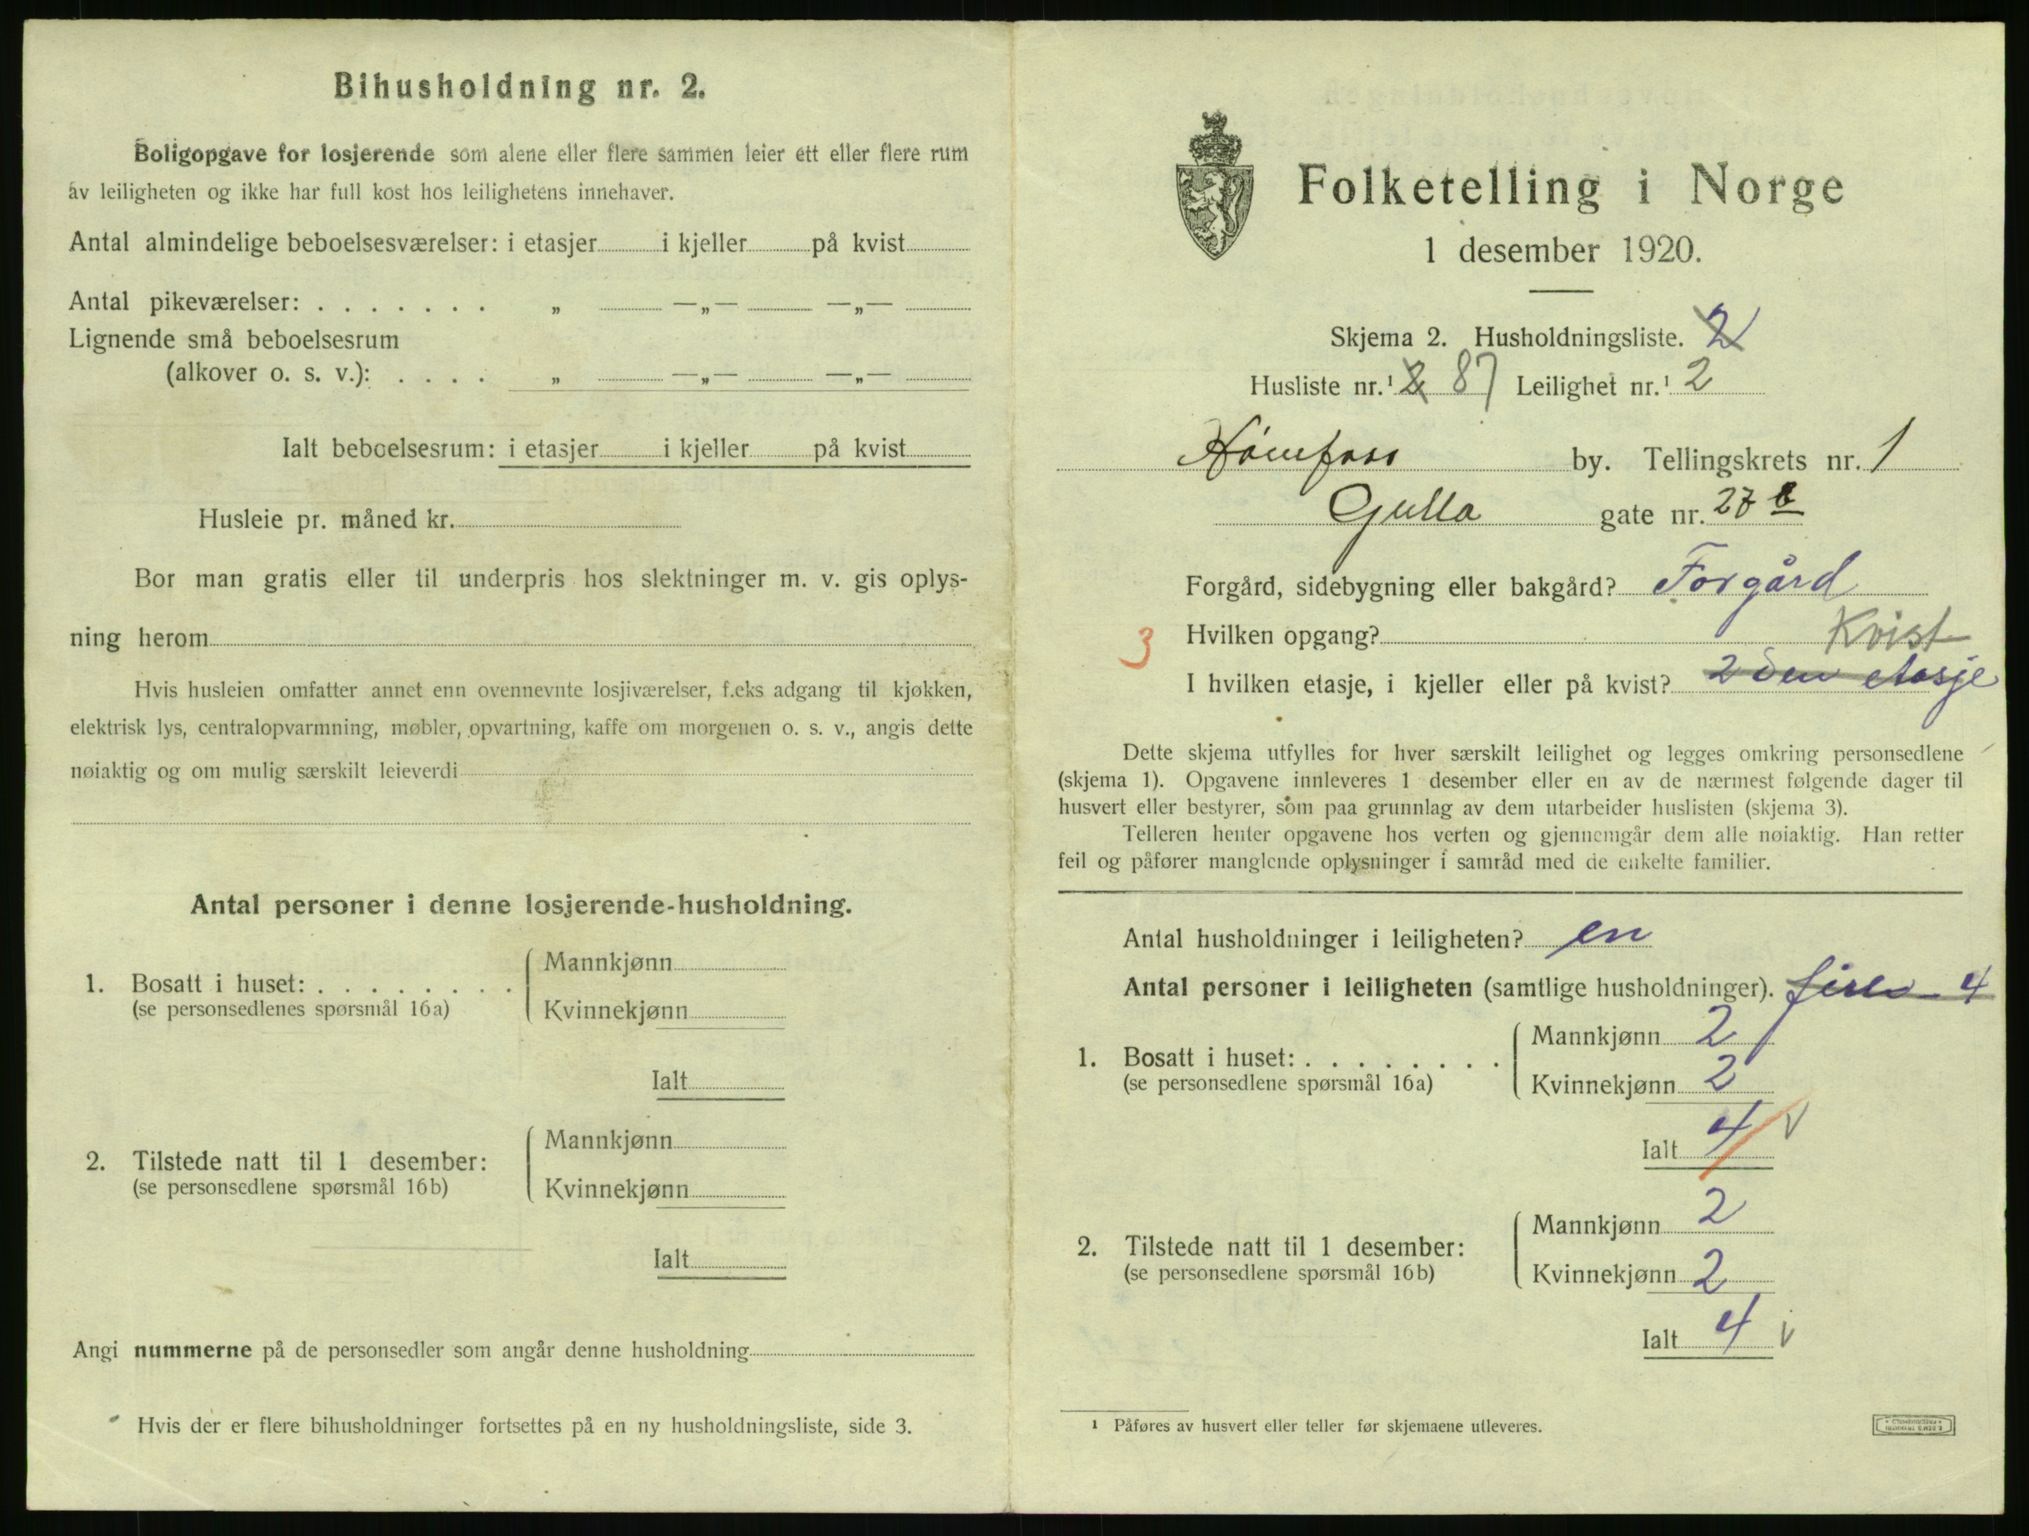 Bihusholdning nr. 2.
Boligopgave for losjerende som alene eller flere sammen leier ett eller flere rum
av leiligheten og ikke har full kost hos leilighetens innehaver.
Antal almindelige beboelsesværelser: i etasjer i kjeller på kvist
Antal pikeværelser: . . . . . . . „ —„— —„—
Lignende små beboelsesrum
(alkover o. s. v.): . . . . „ —„— —„—
Ialt beboelsesrum: i etasjer i kjeller på kvist
Husleie pr. måned kr.
Bor man gratis eller til underpris hos slektninger m. v. gis oplys-
ning herom
Hvis husleien omfatter annet enn ovennevnte losjiværelser, f.eks adgang til kjøkken,
elektrisk lys, centralopvarmning, møbler, opvartning, kaffe om morgenen o. s. v., angis dette
nøiaktig og om mulig særskilt leieverdi
Antal personer i denne losjerende-husholdning.
1. Bosatt i huset: . . . . . . . . Mannkjønn
(se personsedlenes spørsmål 16a) Kvinnekjønn
Ialt
2. Tilstede natt til 1 desember: Mannkjønn
(se personsedlene spørsmål 16b) Kvinnekjønn
Ialt
Angi nummerne på de personsedler som angår denne husholdning
Hvis der er flere bihusholdninger fortsettes på en ny husholdningsliste, side 3.
Folketelling i Norge
1 desember 1920.
Skjema 2. Husholdningsliste. 2
Husliste nr.¹ 2 87 Leilighet nr.¹ 2
Hønefoss by. Tellingskrets nr. 1
Gulla gate nr. 27 b
Forgård, sidebygning eller bakgård? Forgård
3 Hvilken opgang? Kvist
I hvilken etasje, i kjeller eller på kvist? 2den etasje
Dette skjema utfylles for hver særskilt leilighet og legges omkring personsedlene
(skjema 1). Opgavene innleveres 1 desember eller en av de nærmest følgende dager til
husvert eller bestyrer, som paa grunnlag av dem utarbeider huslisten (skjema 3).
Telleren henter opgavene hos verten og gjennemgår dem alle nøiaktig. Han retter
feil og påfører manglende oplysninger i samråd med de enkelte familier.
Antal husholdninger i leiligheten? en
Antal personer i leiligheten (samtlige husholdninger). 4
1. Bosatt i huset: . . . . . . . . Mannkjønn 2
(se personsedlene spørsmål 16a) Kvinnekjønn 2
Ialt 4
2. Tilstede natt til 1 desember: Mannkjønn 2
(se personsedlene spørsmål 16b) Kvinnekjønn 2
Ialt 4
¹ Påføres av husvert eller teller før skjemaene utleveres.